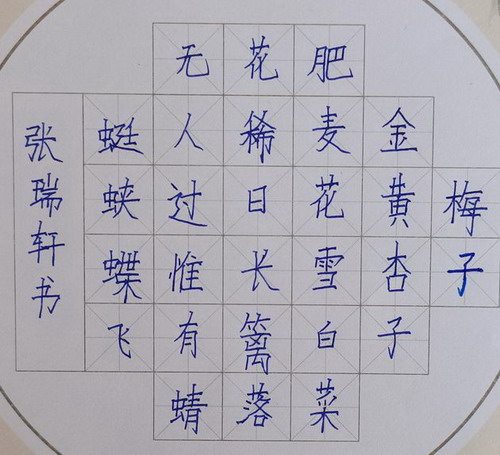 梅子
金黄杏子
肥麦花雪白菜
花稀日长篱落
无人过惟有蜻
蜓蛱蝶飞
张瑞轩书